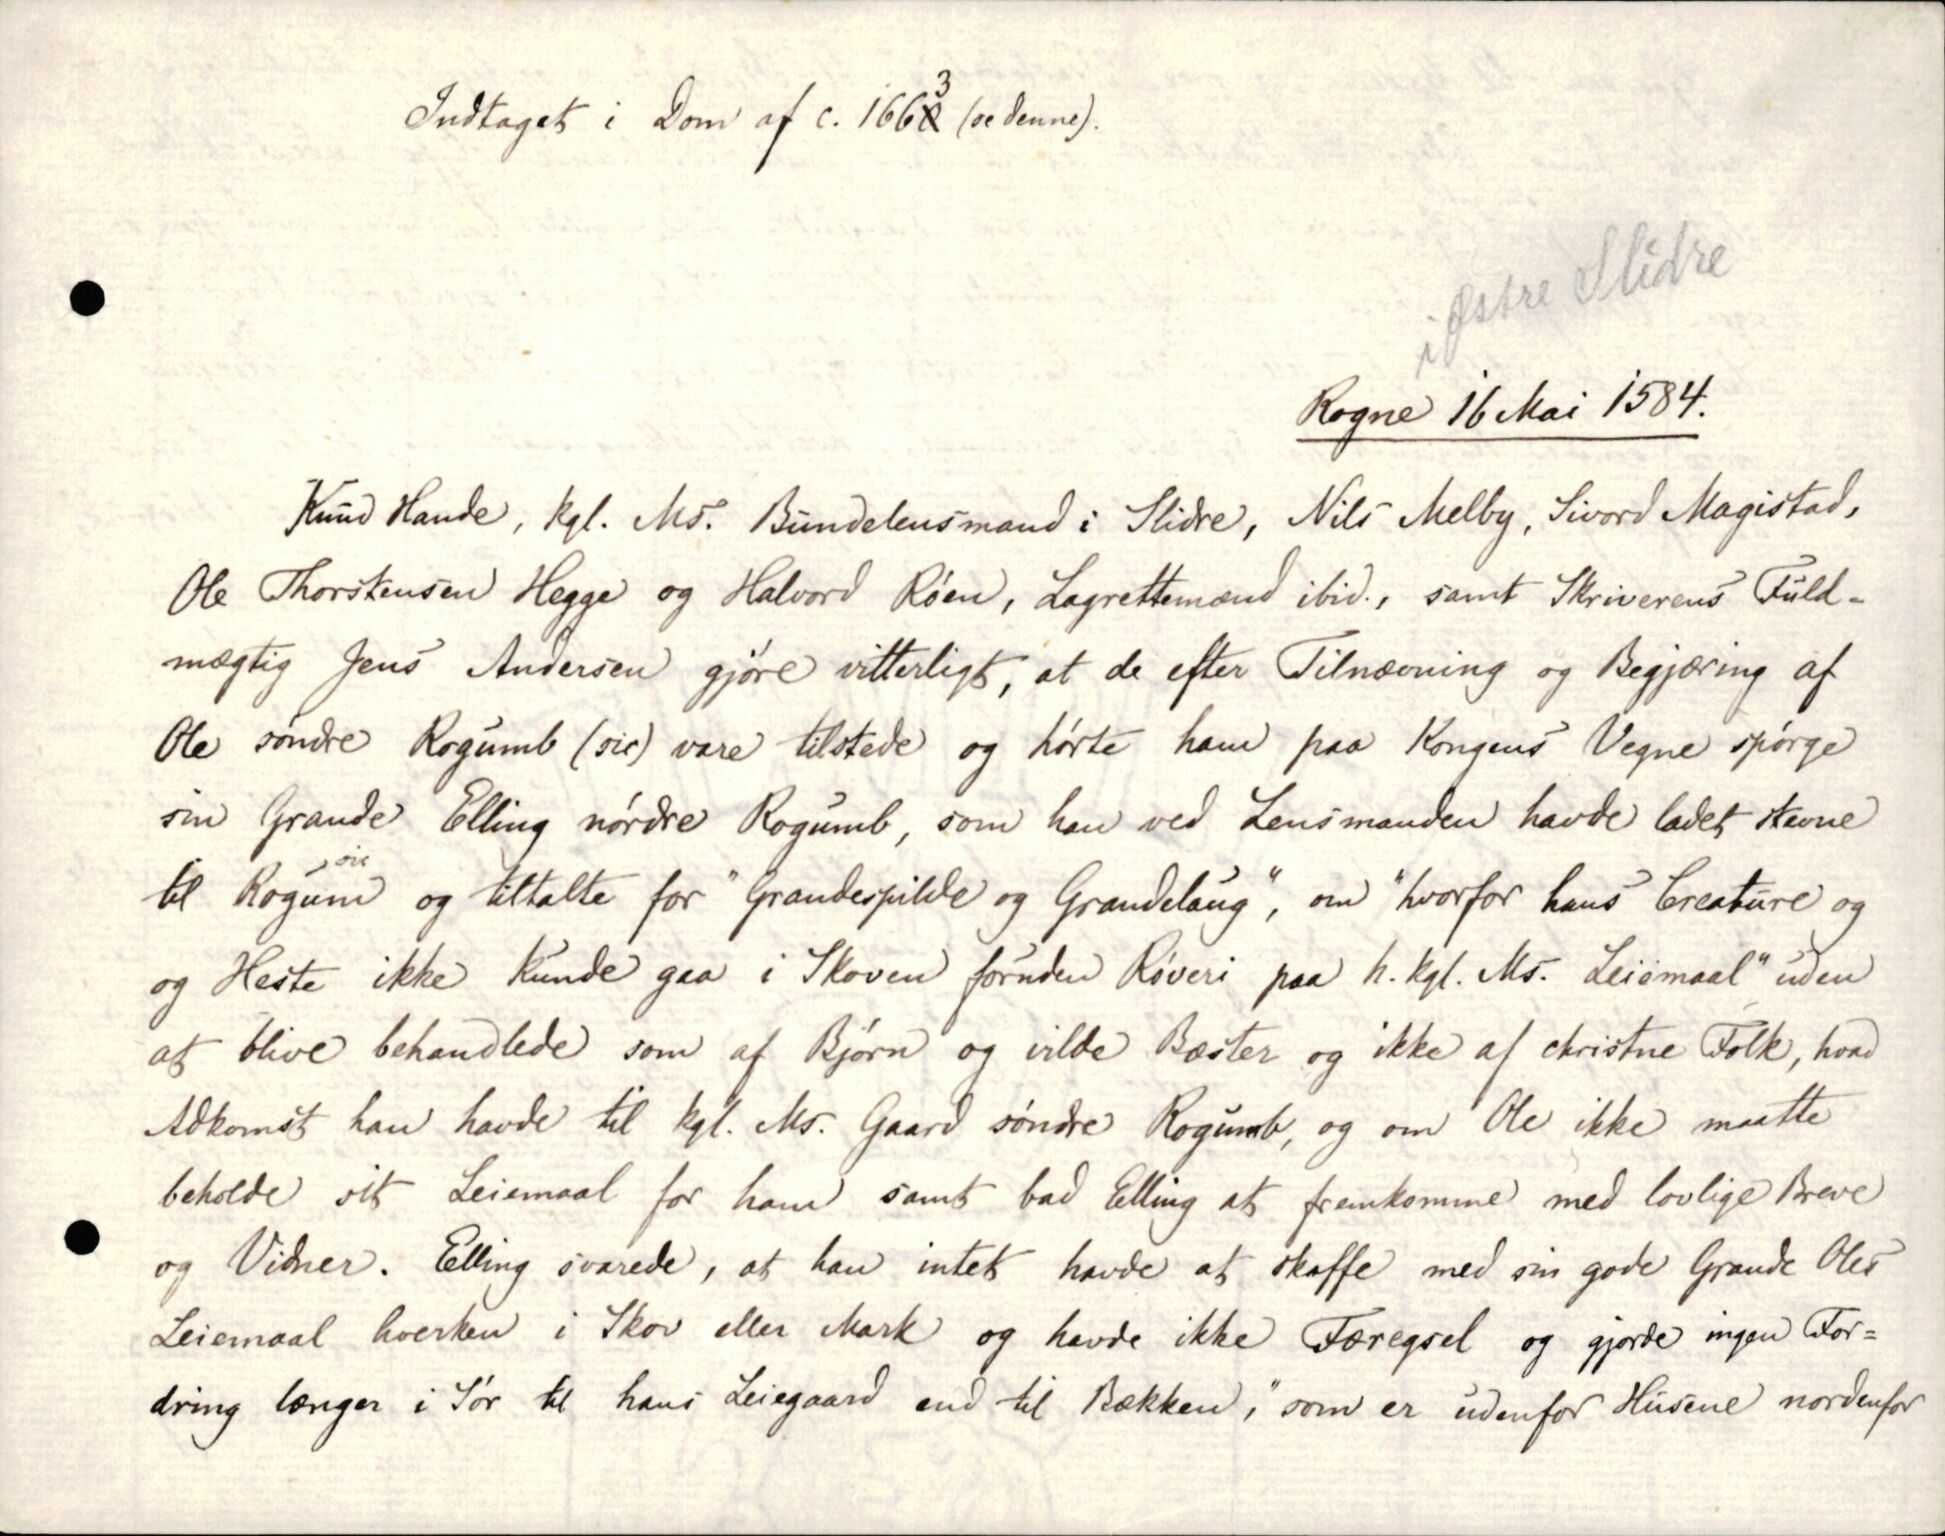 Indtaget i Dom af c. 1663 (se denne).
i Østre Slidre
Rogne 16 Mai 1584.
Knud Hande, kgl. Ms. Bundelensmand i Slidre, Nils Melby, Sivord Magistad,
Ole Thorstensen Hegge og Halvord Röen, Lagrettemænd ibid., samt Skriverens Fuld-
mægtig Jens Andersen gjöre vitterligt, at de efter Tilnævning og Begjæring af
Ole söndre Rogumb (sic) vare tilstede og hörte ham paa Kongens Vegne spörge
sin Grande Elling nördre Rogumb, som han ved Lensmanden havde ladet stevne
til Rogum (sic) og tiltalte for "Grandespilde og Grandelaug", om "hvorfor hans Creature og
og Heste ikke kunde gaa i Skoven forunden Röveri paa h. kgl. Ms. Leiemaal" uden
at blive behandlede som af Björn og vilde Bæster og ikke af christne Folk, hvad
Adkomst han havde til kgl. Ms. Gaard söndre Rogumb, og om Ole ikke maatte
beholde sit Leiemaal for ham samt bad Elling at fremkomme med lovlige Breve
og Vidner. Elling svarede, at han intet havde at skaffe med sin gode Grande Oles
Leiemaal hverken i Skov eller Mark og havde ikke Færegsel og gjorde ingen For=
dring længer i Sör til hans Leiegaard end til Bækken, "som er udenfor Husene nordenfor